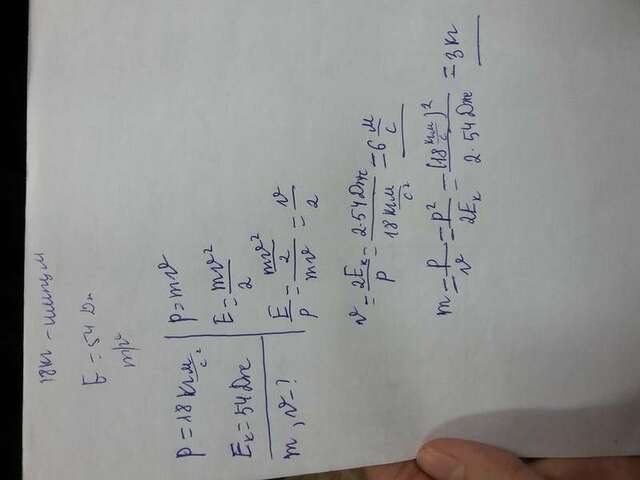 18кг - импульс
E = 54 Дж
m, v
P = 18 кг м/с²
Eк = 54 Дж
m, v - ?
P = mv
E = mv²/2
E/P = (mv²/2)/mv = v/2
v = 2Eк/P = 2·54 Дж/18 кг м/с² = 6 м/с
m = P/v = P²/2Eк = (18 кг м/с)²/2·54 Дж = 3 кг